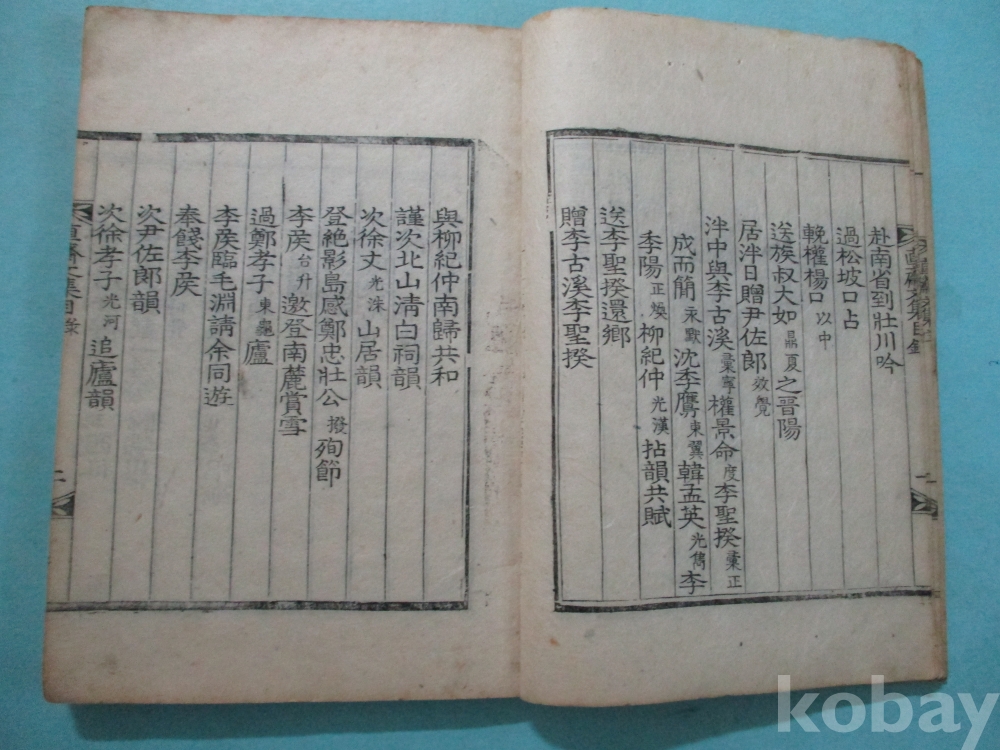 赴南省到壯川吟
過松坡口占
輓權楊口以中
送族叔大如鼎夏之晋陽
居泮日贈尹佐郎效覺
泮中與李古溪彙寧權景命度李聖揆彙正
成而簡永歐沈李鷹東翼韓孟英光儁李
季陽正煥柳紀仲光漢拈韻共賦
送李聖揆還鄉
贈李古溪李聖揆
與柳紀仲南歸共和
謹次北山清白祠韻
次徐丈光洙山居韻
登絶影島感鄭忠壯公撥殉節
李矦台升邀登南麓賞雪
過鄭孝子東龜廬
李矦臨毛淵請余同遊
奉餞李矦
次尹佐郎韻
次徐孝子光河追廬韻
文集目錄
二
kobay